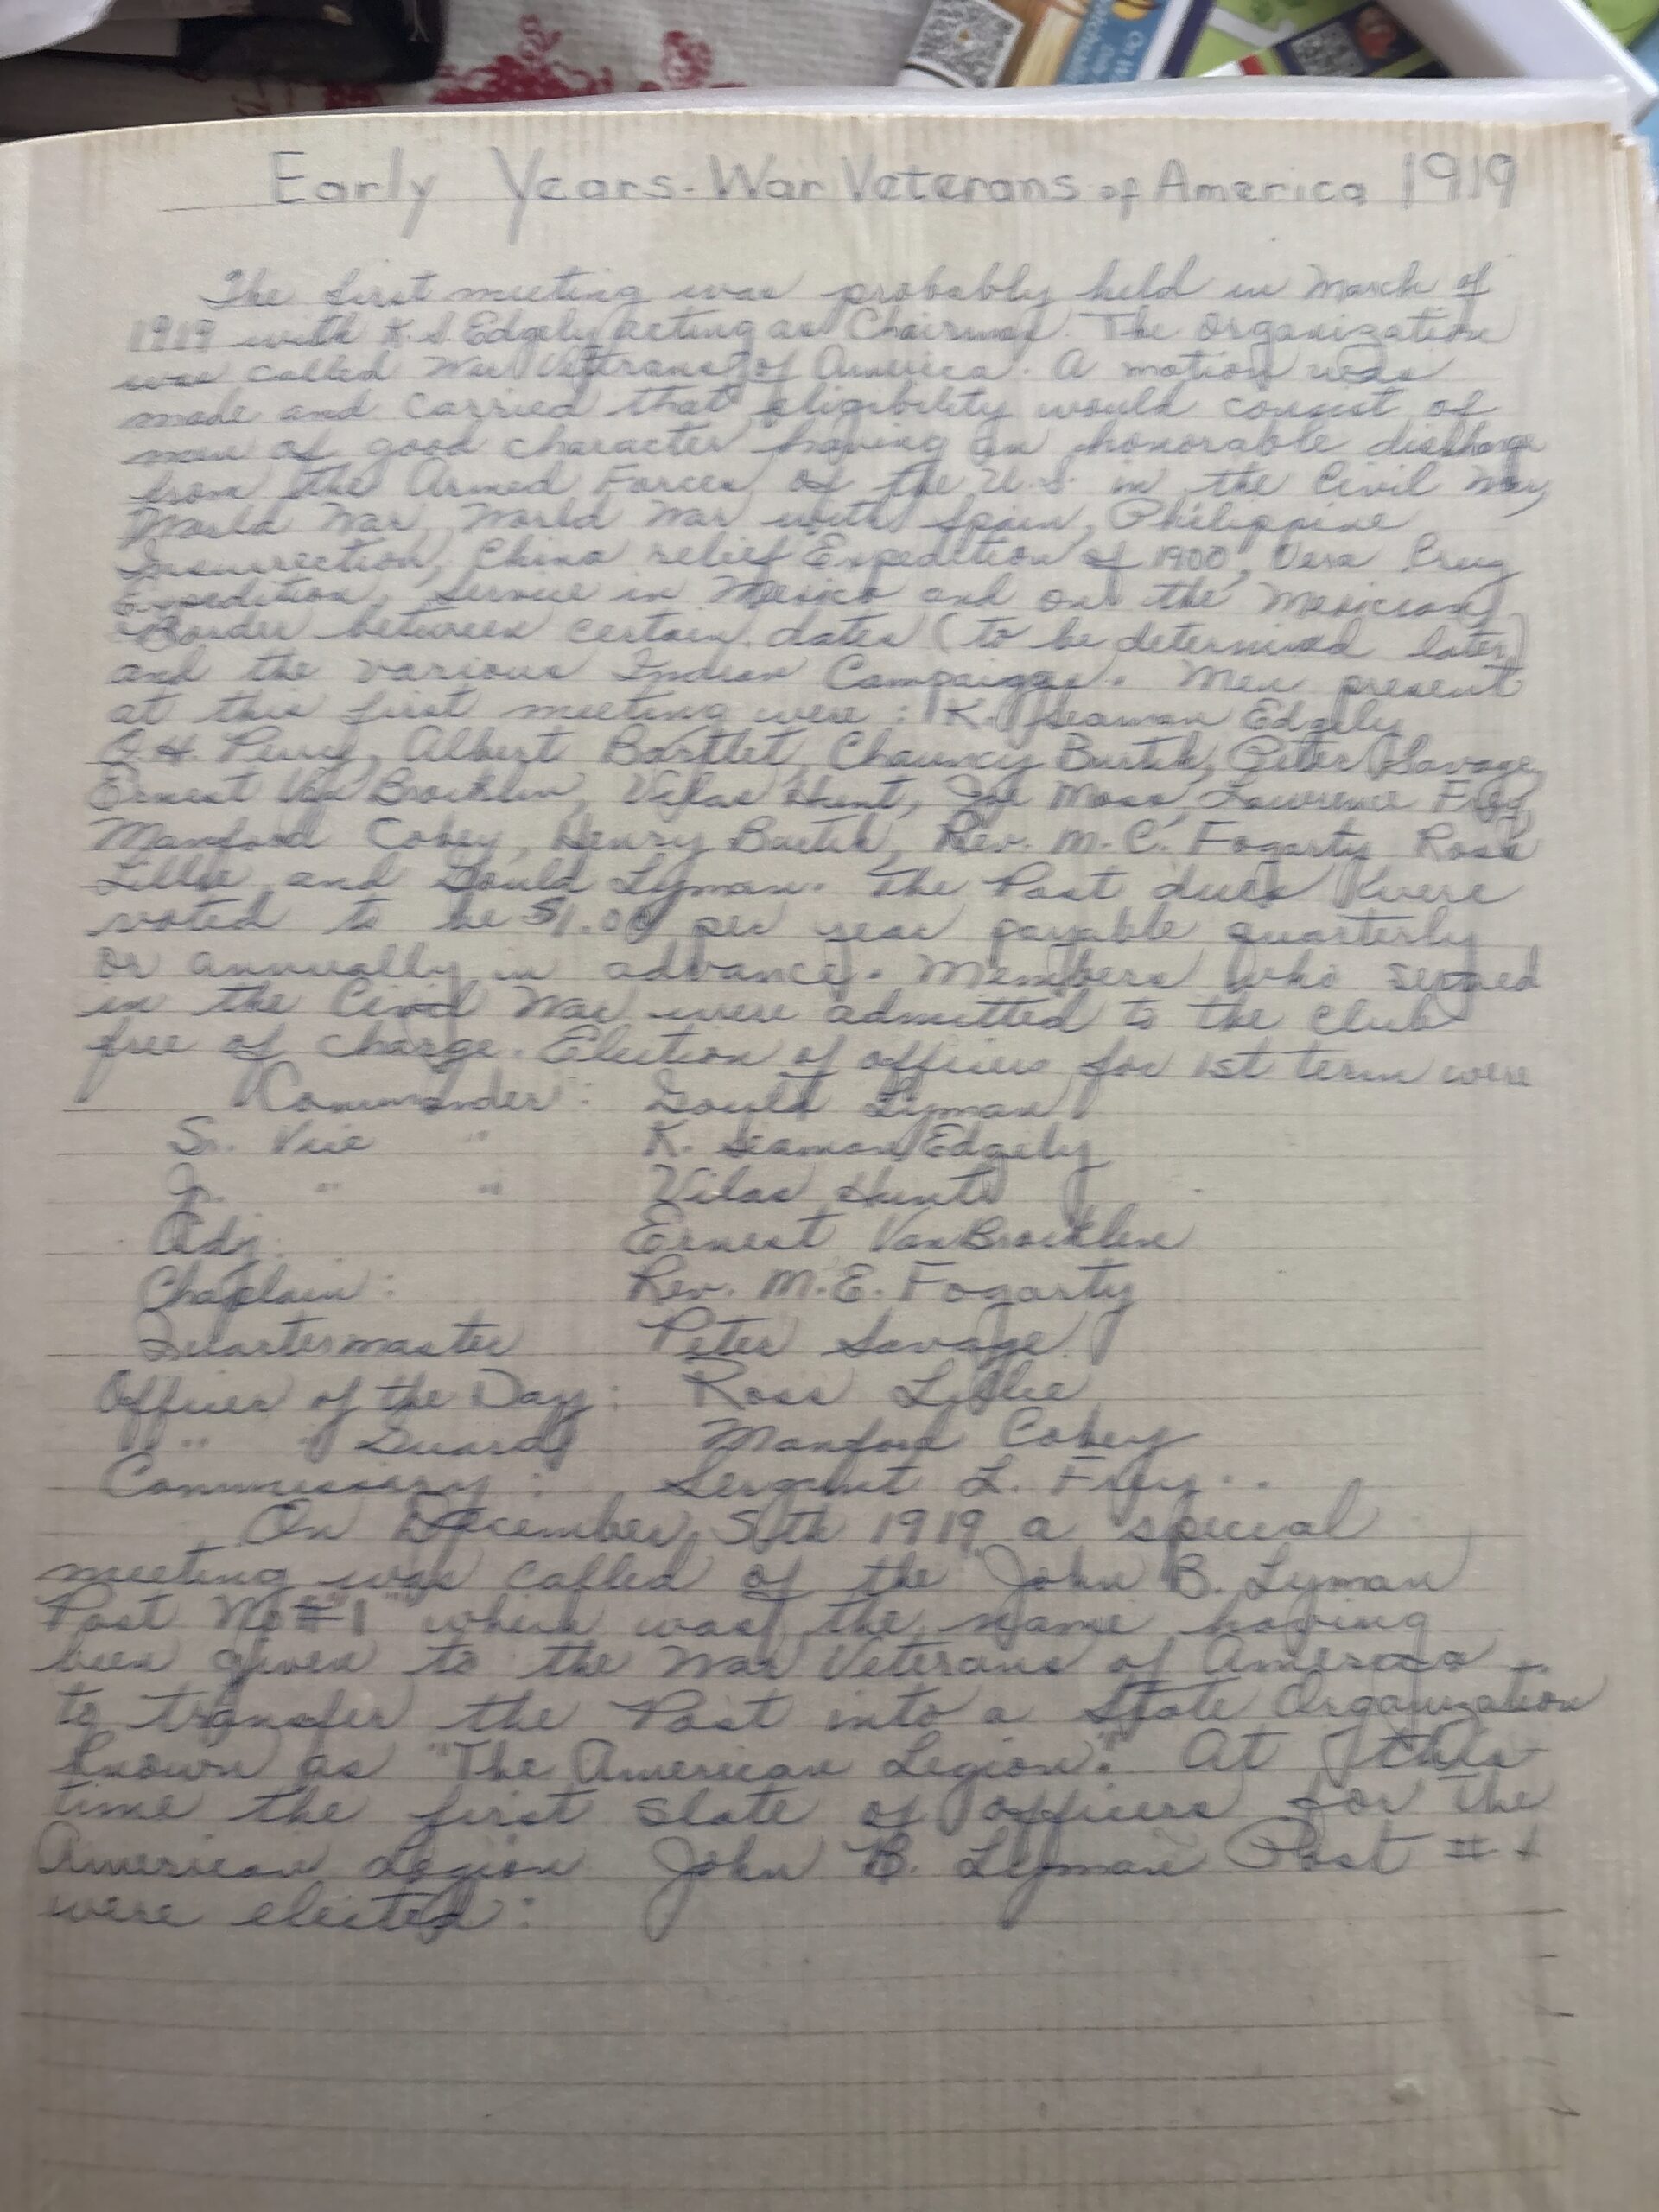 Early Years - War Veterans of America 1919
The first meeting was probably held in March of
1919 with K. S Edgely acting as Chairman. The Organization
was called War Veterans of America. A motion was
made and carried that eligibility would consist of
men of good character having an honorable discharge
from the Armed Forces of the U.S. in the Civil War,
World War, World War with Spain, Philippine
Insurrection, China relief Expedition of 1900, Vera Cruz
Expedition, Service in Mexico and on the Mexican
Border between certain dates (to be determined later)
and the various Indian Campaigns. Men present
at this first meeting were: K. Seaman Edgely
Albert Bartlet, Chauncy Peter Savage,
Ernest Van Brocklin, Vilas Hunt, Joe Moss, Lawrence Frey,
Manford Cobey, Henry Rev. M.C. Fogarty Ross
Lillie and Gould Lyman. The Post dues were
voted to be $1.00 per year payable quarterly
or annually in advance. Members who served
in the Civil War were admitted to the club
free of charge. Election of officers for 1st term were
Commander: Gould Lyman
Sr. Vice " K. Seaman Edgely
Jr. " " Vilas Hunt
Adj. Ernest VanBrocklin
Chaplain: Rev. M.E. Fogarty
Quartermaster Peter Savage
Officer of the Day: Ross Lillie
" " Guard Manford Cobey
Commissary: Sergent L. Frey..
On December 5th 1919 a special
meeting was called of the "John B. Lyman
Post No #1" which was the name having
been given to the War Veterans of America
to transfer the Post into a State Organization
known as "The American Legion." At this
time the first slate of officers for the
American Legion John B. Lyman Post #1
were elected: